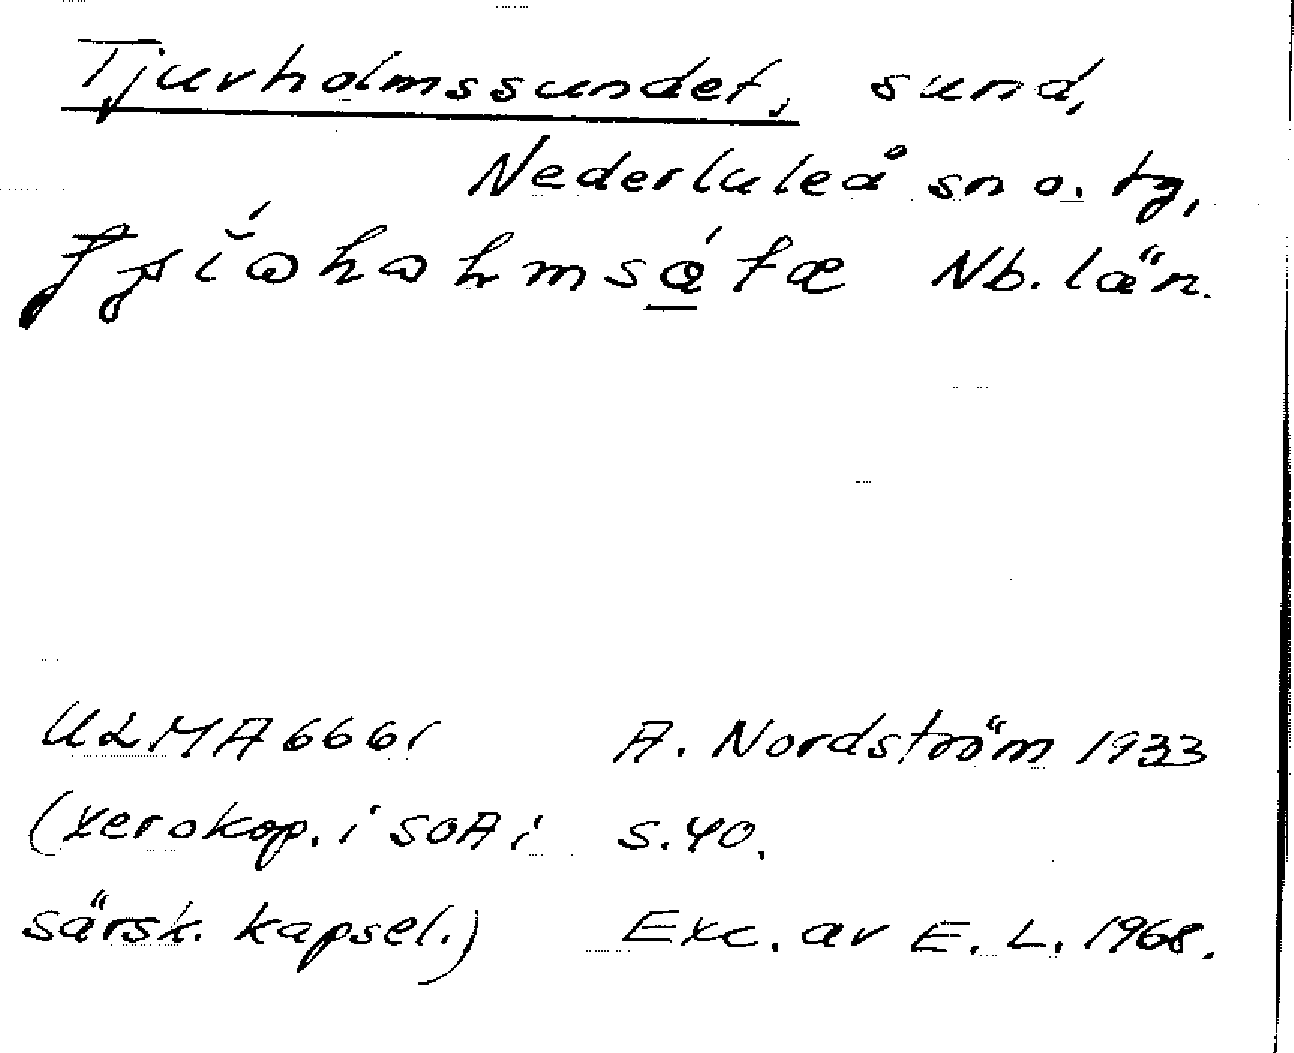 Tjurholmssundet, sund,
Nederluleå sn o. tg,
Nb. län.
ULMA 6661 A. Nordström 1933
(xerokop. i SOA i s. 40.
särsk. kapsel.) Exc. av E. L. 1968.